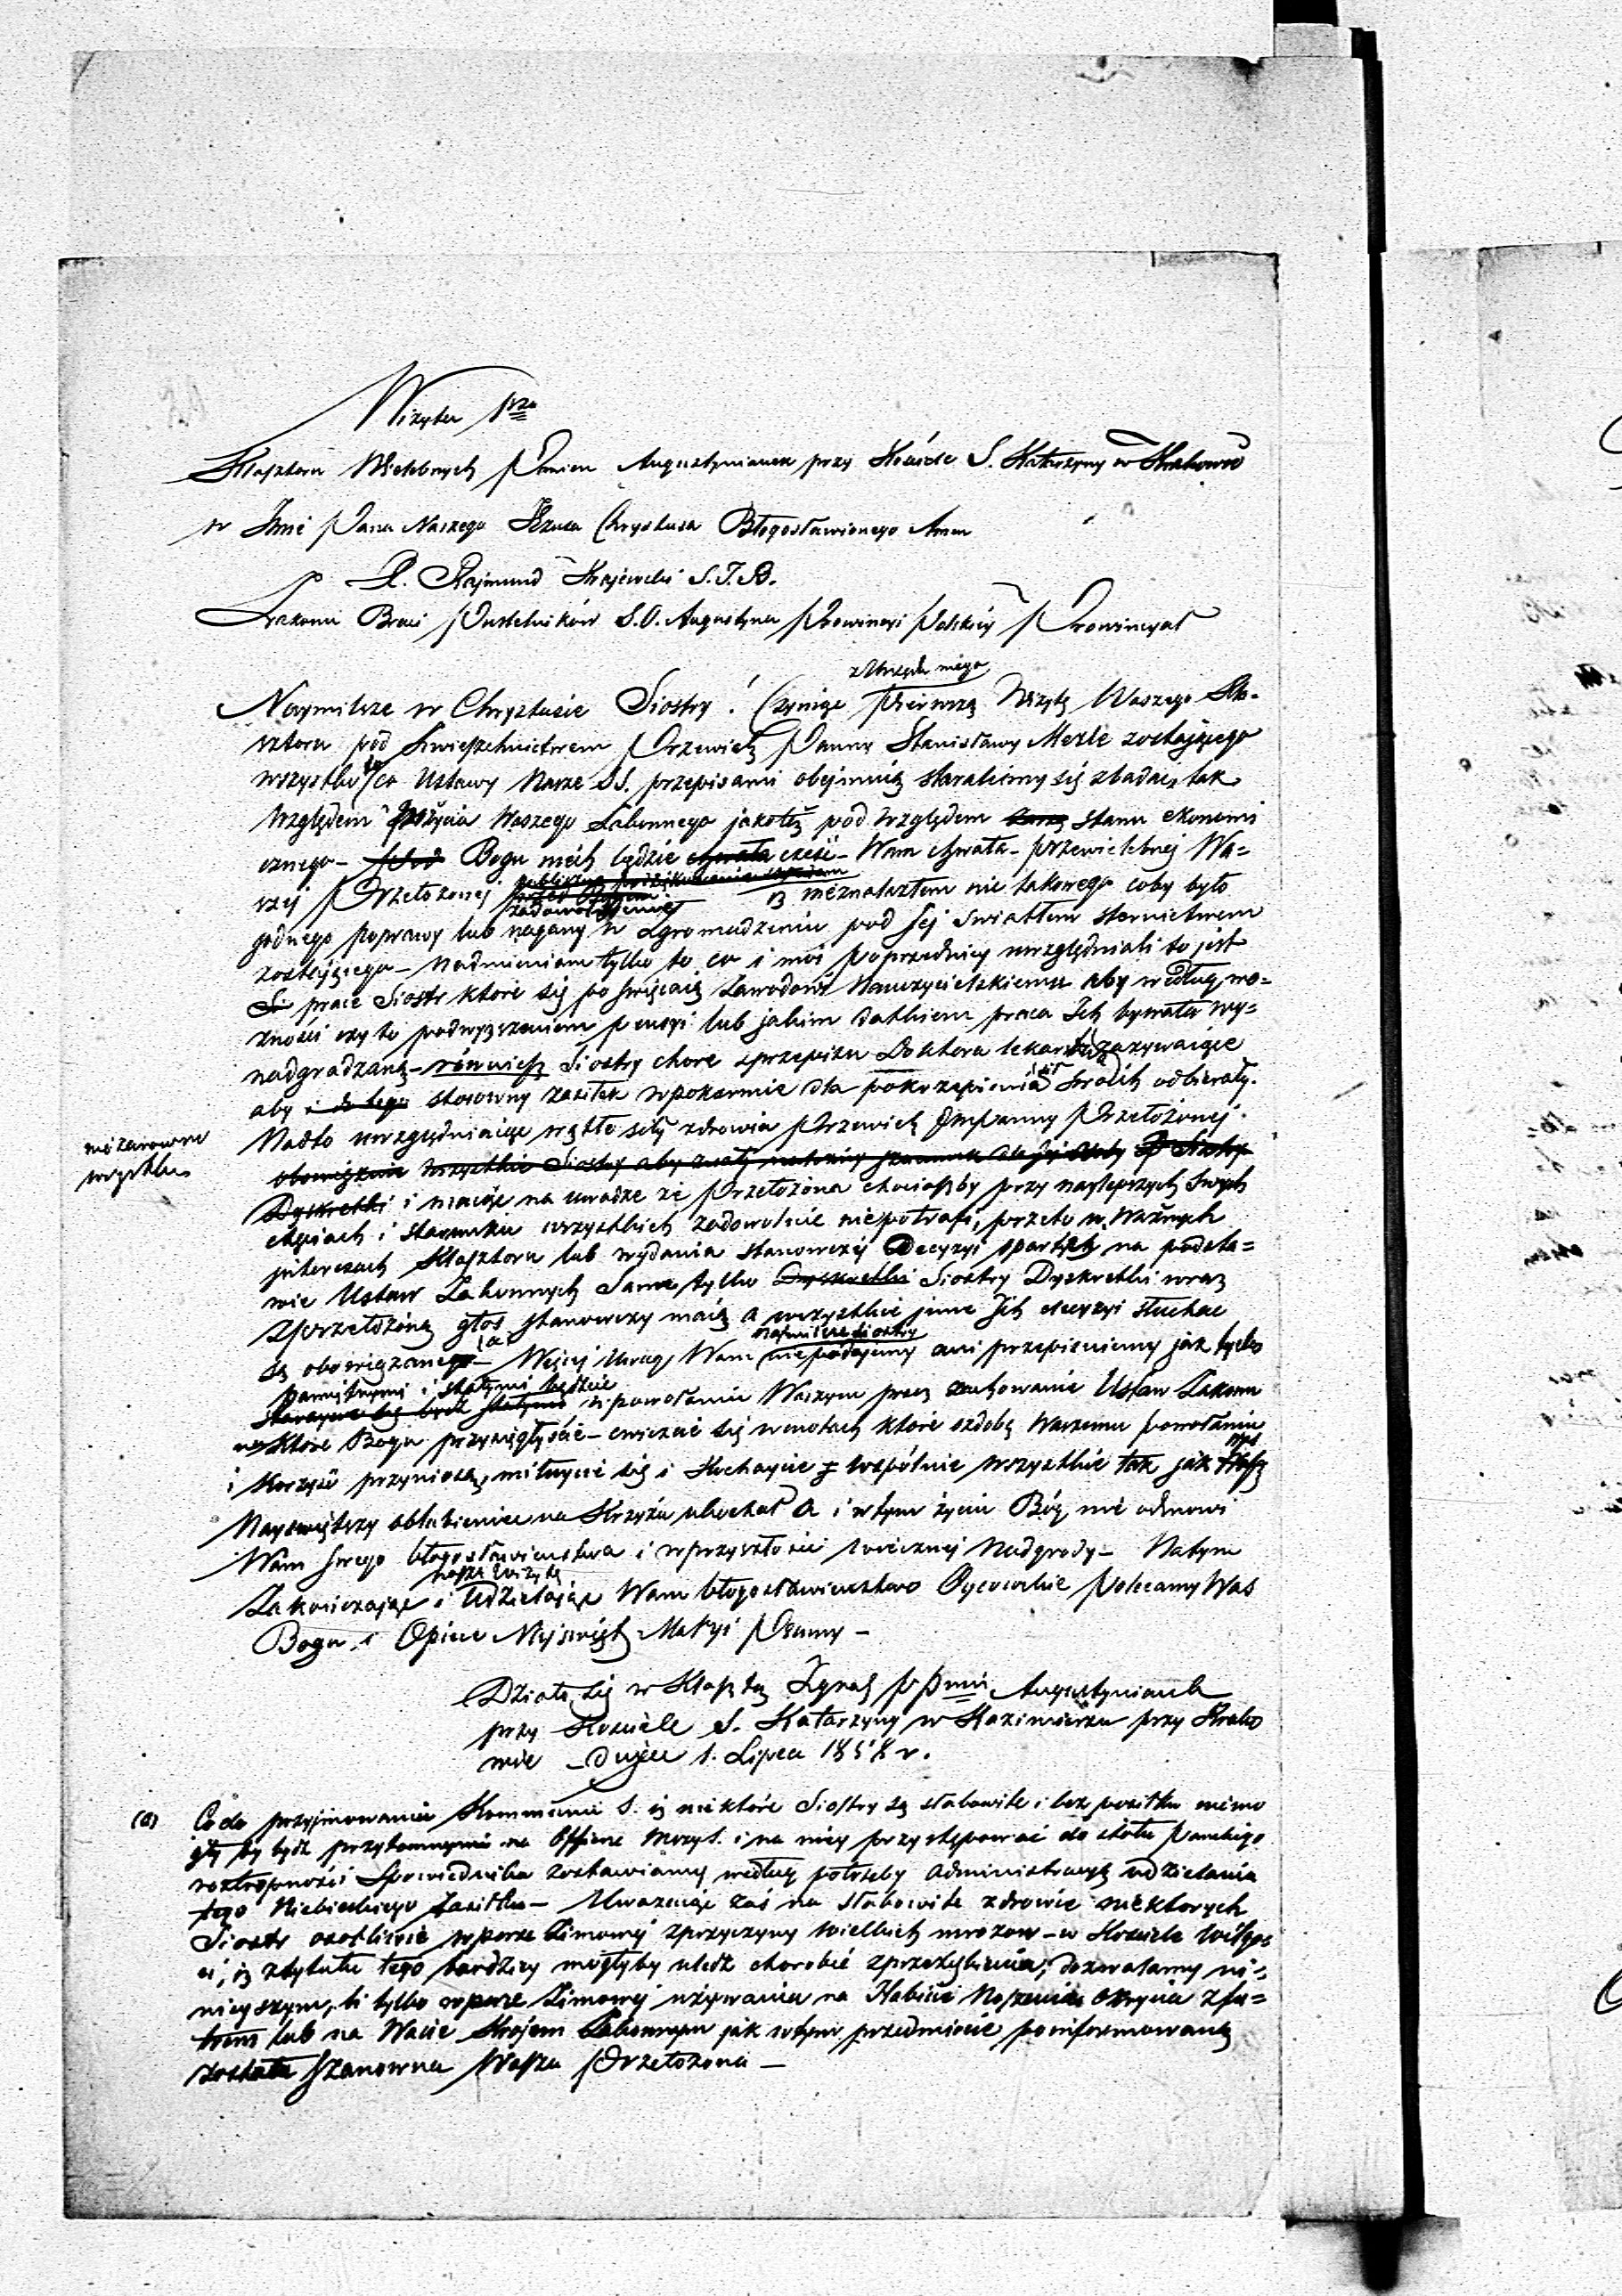 Wizyta 1sza
Klasztoru Wielebnych Panien Augustynianek przy Kościele S. Katarzyny w Krakowie
w Imie Pana Naszego Jezusa Chrystusa Błogosławionego Amen
X. Rajmund Krajewski S.T.B.
Zakonu Braci Pustelników S.O. Augustyna Prowincyi Polskiej Prowincyał
z Urzędu mego
Naymilsze w Chrystusie Siostry! Czyniąc Pierwszą Wizytę Waszego Kla-
sztoru pod Zwierzchnictwem Przewiel. Panny Stanisławy Merle zostającego
wszystko co Ustawy Nasze SS. przepisami obejmują staraliśmy się zbadać, tak
względem Życia Waszego Zakonnego jakoteż pod względem stanu ekonomi
cznego – Bogu niech będzie chwała cześć – Wam chwała – przewielebnej Wa=
szej Przełożonej zadowolenie iż nieznalazłem nic takowego coby było
godnego poprawy lub nagany w Zgromadzeniu pod Jej światłem sternictwem
zostającego – nadmieniam tylko to co i moi Poprzednicy uwzględniali to jest
prace Siostr które się poświęcają Zawodowi Nauczycielskiemu aby według mo=
żności czy to podwyższeniem pensyi lub jakim datkiem praca Ich bywała wy=
nadgradzaną – również Siostry chore z przepisu Doktora lekarstwa zazywające
aby i do tego stosowny zasiłek w pokarmie dla pokrzepienia sił swoich odbierały.
Nadto uwzględniając wątłe siły zdrowia Przewiel. Jmpanny Przełożonej
niezarowno
wszystkie
obowiązanie wszystkie Siostry aby
Dyskretki i mając na uwadze że Przełożona chociażby przy naylepszych swych
chęciach i staranku wszystkich zadowolnić niepotrafi, przeto w Ważnych
interesach Klasztoru lub wydania stanowczej Decyzyi opartych na podsta=
wie Ustaw Zakonnych Same tylko Dyskretki Siostry Dyskretki wraz
z przełożoną głos stanowczy mają a wszystkie inne Ich decyzyi słuchać
są obowiązane (a) – Więcej Uwag Wam najmilsze Siostry niepodajemy ani przepisujemy jak tylko
pamiętnymi i stałymi bądźcie
w powołaniu Waszym przez zachowanie Ustaw Zakon
nych które Bogu przysięgłyście – ćwiczcie się w cnotach które ozdobę Waszemu powołaniu
i korzyść przyniosą, miłujcie się i kochajcie wspólnie wszystkie tak jak Was
Nayświętszy oblubieniec na Krzyżu ukochał a i w tym życiu Bóg nie odmówi
Wam swego błogosławieństwa i w przyszłości wiecznej Nadgrody – Na tym
naszą wizytę
Zakończając i Udzielając Wam błogosławieństwo Oycowskie Polecamy Was
Bogu i Opiece Nayświęt. Maryi Panny –
Działo się w Klasztorze Augustynianek
przy Kościele S. Katarzyny w Kazimierzu przy Krako
wie – dnia 1. Lipca 1858 r.
(a) Co do przyjmowania Kommunii S. iż niektóre Siostry są słabowite i bez posiłku
by bydź przytomnymi na Mszy S. i na niey przystępować do stołu Pańskiego
roztropności Spowiednika zostawiamy według potrzeby Administracyą udzielania
tego Niebieskiego Zasiłku – Uważając zaś na słabowite zdrowie niektórych
Siostr osobliwie w porze Zimowej z przyczyny wielkich mrozów – w Kościele wilgoc
i, iż z tytułu tego bardziey mogłyby uledz chorobie z przeziębienia; dozwalamy ni=
nieyszym, li tylko w porze Zimowej używania na Habicie Noszenia Okrycia z fu=
trem lub na Wacie Krojem Zakonnym jak w tym przedmiocie poinformowaną
została Szanowna Wasza Przełożona –